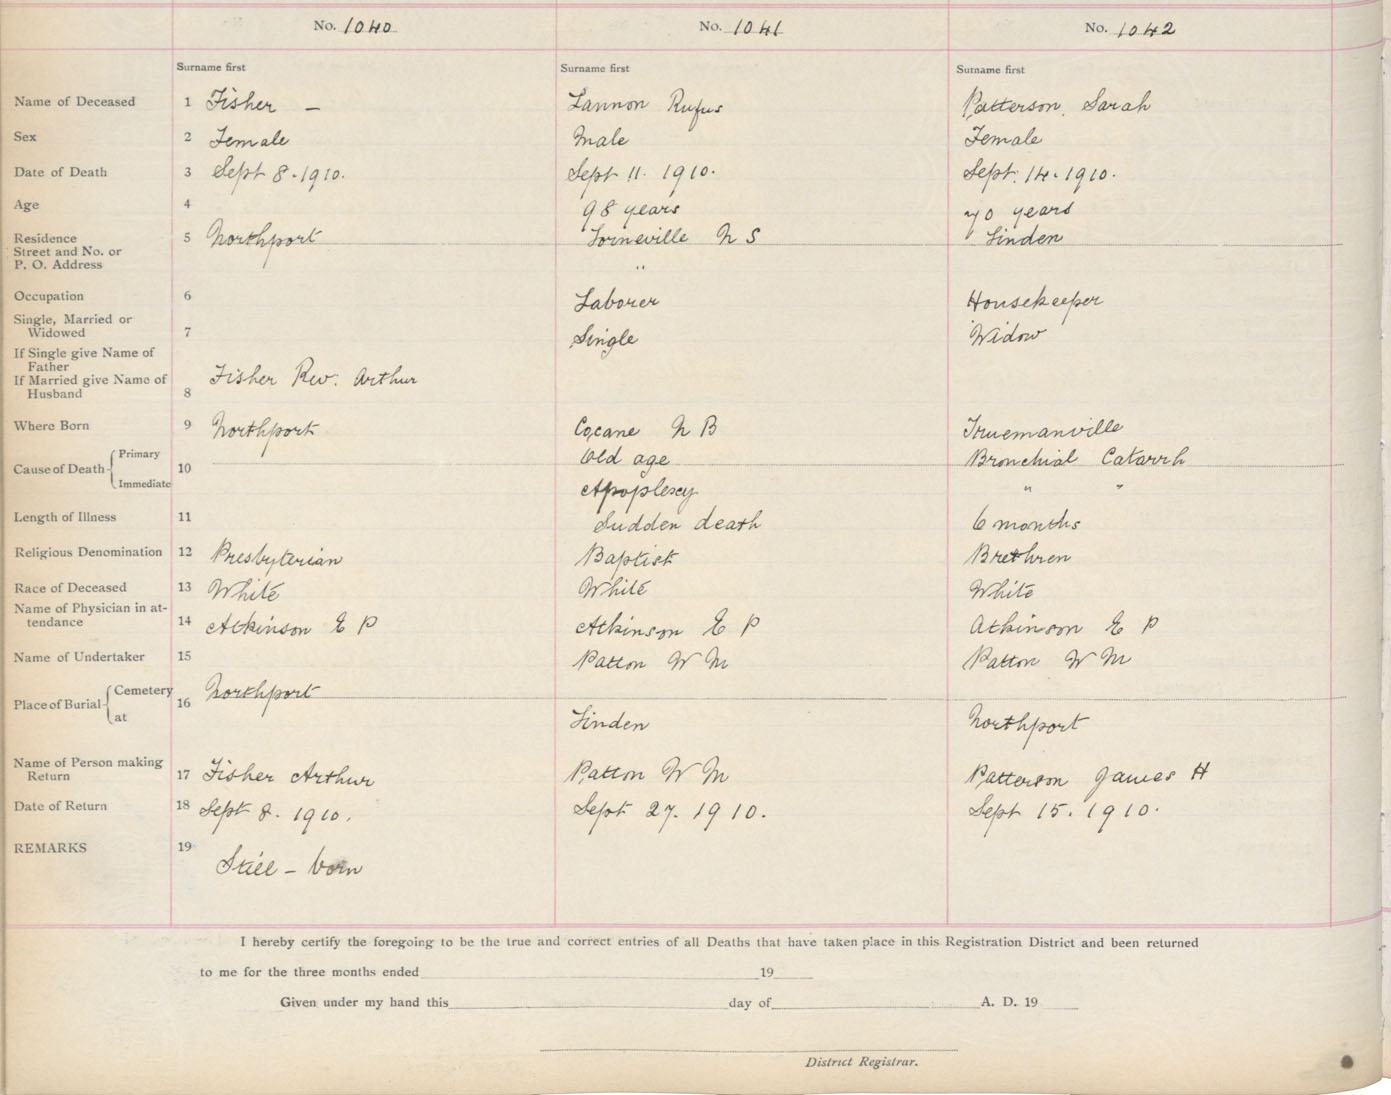 No. 1040 No. 1041 No. 1042
Surname first Surname first Surname first
Name of Deceased 1 Fisher — Lannon Rufus Patterson Sarah
Sex 2 Female Male Female
Date of Death 3 Sept 8. 1910. Sept 11. 1910. Sept. 14. 1910.
Age 4 98 years 70 years
Residence 5 Northport Lorneville N S Linden
Street and No. or
P. O. Address "
Occupation 6 Laborer Housekeeper
Single, Married or
Widowed 7 Single Widow
If Single give Name of
Father
If Married give Name of Fisher Rev. Arthur
Husband 8
Where Born 9 Northport Cocane N B Truemanville
Cause of Death Primary 10 Old age Bronchial Catarrh
Immediate Apoplexy " "
Length of Illness 11 Sudden death 6 months
Religious Denomination 12 Presbyterian Baptist Brethren
Race of Deceased 13 White White White
Name of Physician in at-
tendance 14 Atkinson E P Atkinson E P Atkinson E P
Name of Undertaker 15 Patton W M Patton W M
Place of Burial Cemetery 16 Northport
at Linden Northport
Name of Person making
Return 17 Fisher Arthur Patton W M Patterson James H
Date of Return 18 Sept 8. 1910. Sept 27. 1910. Sept 15. 1910.
REMARKS 19
Still – born
I hereby certify the foregoing to be the true and correct entries of all Deaths that have taken place in this Registration District and been returned
to me for the three months ended 19
Given under my hand this day of A. D. 19
District Registrar.